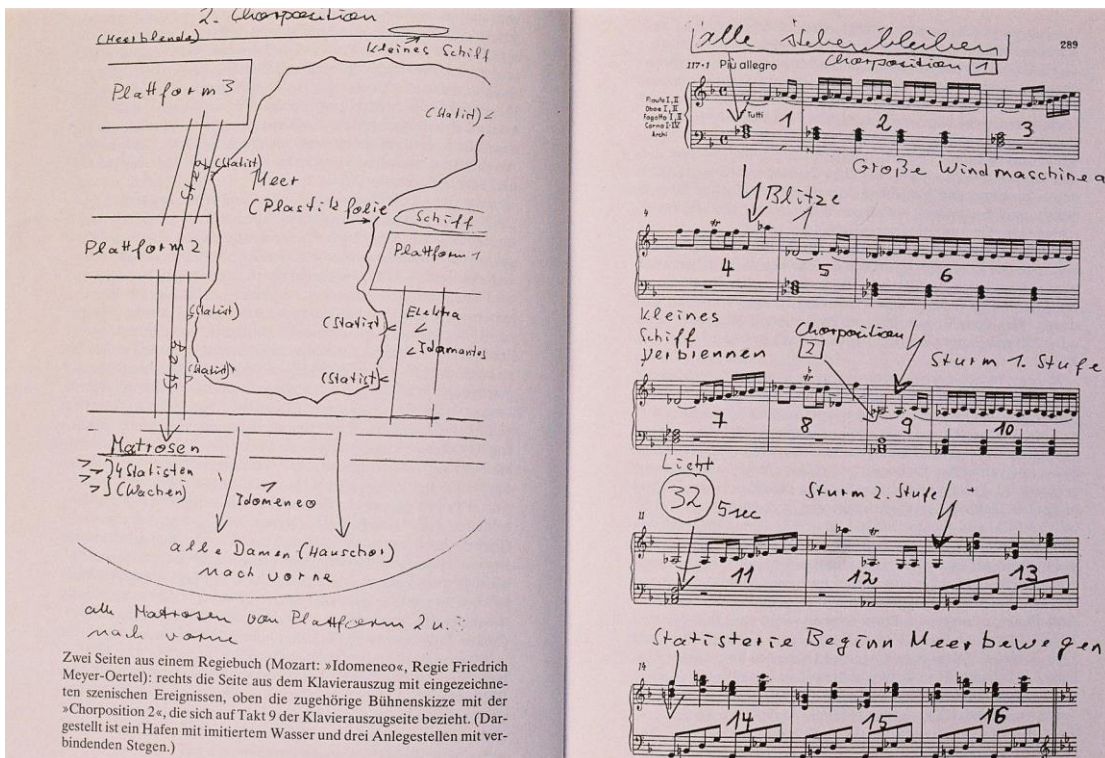 2. Chorposition
(Meerblende)
kleines Schiff
Plattform 3
(Statist)
Steg
(Statist)
Meer
(Plastikfolie
Schiff
Plattform 2
Plattform 1
(Statist)
Elektra
(Statist)
Idamantes
(Statist)
(Statist)
Steg
Matrosen
4 Statisten
(Wachen)
Idomeneo
alle Damen (Hauschor)
nach vorne
alle Matrosen von Plattform 2 u.
nach vorne
Zwei Seiten aus einem Regiebuch (Mozart: »Idomeneo«, Regie Friedrich
Meyer-Oertel): rechts die Seite aus dem Klavierauszug mit eingezeichne-
ten szenischen Ereignissen, oben die zugehörige Bühnenskizze mit der
»Chorposition 2«, die sich auf Takt 9 der Klavierauszugseite bezieht. (Dar-
gestellt ist ein Hafen mit imitiertem Wasser und drei Anlegestellen mit ver-
bindenden Stegen.)
alle stehenbleiben
289
Chorposition 1
117•1 Più allegro
Flauto I, II
Oboe I, II
Fagotto I, II
Corno I-IV
Archi
Tutti
1 2 3
Große Windmaschine a
Blitze
1
4
tr
4 5 6
kleines
Schiff
verbrennen
Chorposition
2
Sturm 1. Stufe
7 8 9 10
Licht
32 5sec
Sturm 2. Stufe
11
tr
11 12 13
Statisterie Beginn Meerbewegen
14
14 15 16